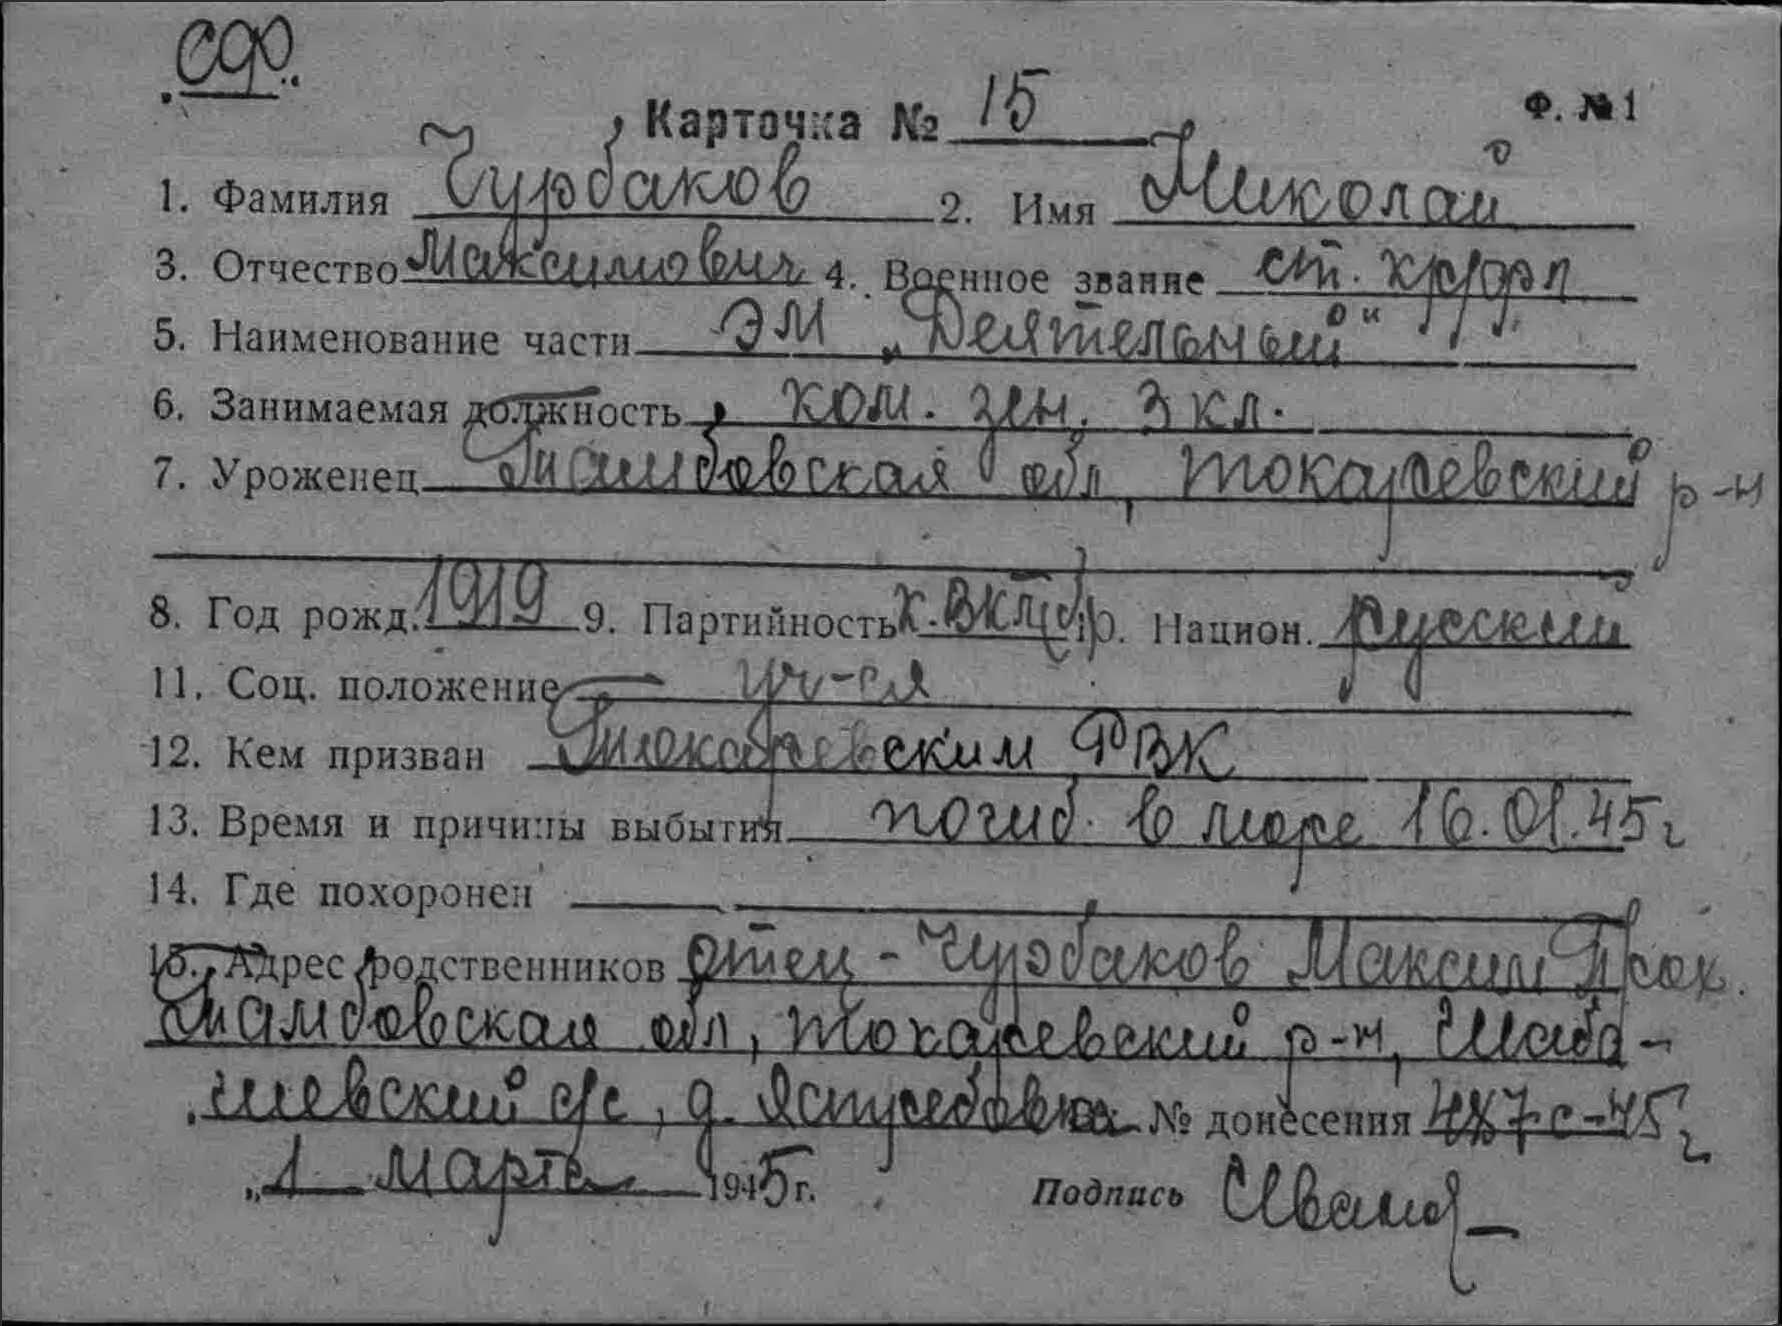 СФ.
Карточка № 15 Ф. №1
1. Фамилия Чурбаков 2. Имя Николай
3. Отчество Максимович 4. Военное звание ст. кр/фл
5. Наименование части ЭМ „Деятельный"
6. Занимаемая должность ком. зен. 3 кл.
7. Уроженец Тамбовская обл, Токаревский р-н
8. Год рожд. 1919 9. Партийность к. ВКП(б) 10. Национ. русский
11. Соц. положение уч-ся
12. Кем призван Токаревским РВК
13. Время и причины выбытия погиб в море 16.01.45г
14. Где похоронен
15. Адрес родственников отец - Чурбаков Максим Прох.
Тамбовская обл, Токаревский р-н, Шаба-
шевский с/с, д. № донесения с-45г
„1 марта 1945 г. Подпись